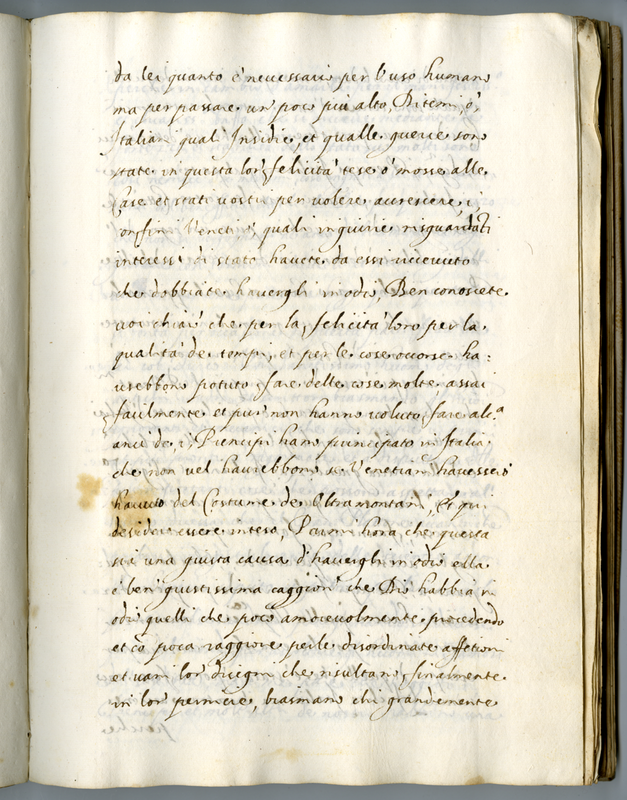 da lei quanto è necessario per l'uso humano
ma per passare un poco piu alto, Ditemi, ò,
Italiani quali Insidie, et qualle guerre sono
state in questa lor, felicità tese ò mosse alle
Case et stati vostri per volere accrescere, i,
confini Veneti, quali ingiurie risguardāti
interessi di stato havete da essi ricevuto
che dobbiate havergli in odio, Ben conoscete
voi chiaro che per la, felicità loro per la
qualità de tempi, et per le cose occorse ha:
urebbono potuto, fare delle cose molte assai
facilmente et pur non hanno voluto, fare al.a
anci de, i, Prencipi hano principato in Italia
che non vel haurebbono se Venetiani havessero
havuto del Costume de Oltramontani, Et qui
desidero essere inteso, Parmi hora che questa
sia una giusta causa d'havergli in odio ella
è ben giustissima caggion che Dio habbia in
odio quelli che poco amorevolmente procedendo
et cō poca raggione per le disordinate affetioni
et vani lor disegni che risultano, finalmente
in lor pernicie, biasmano chi grandemente
perche